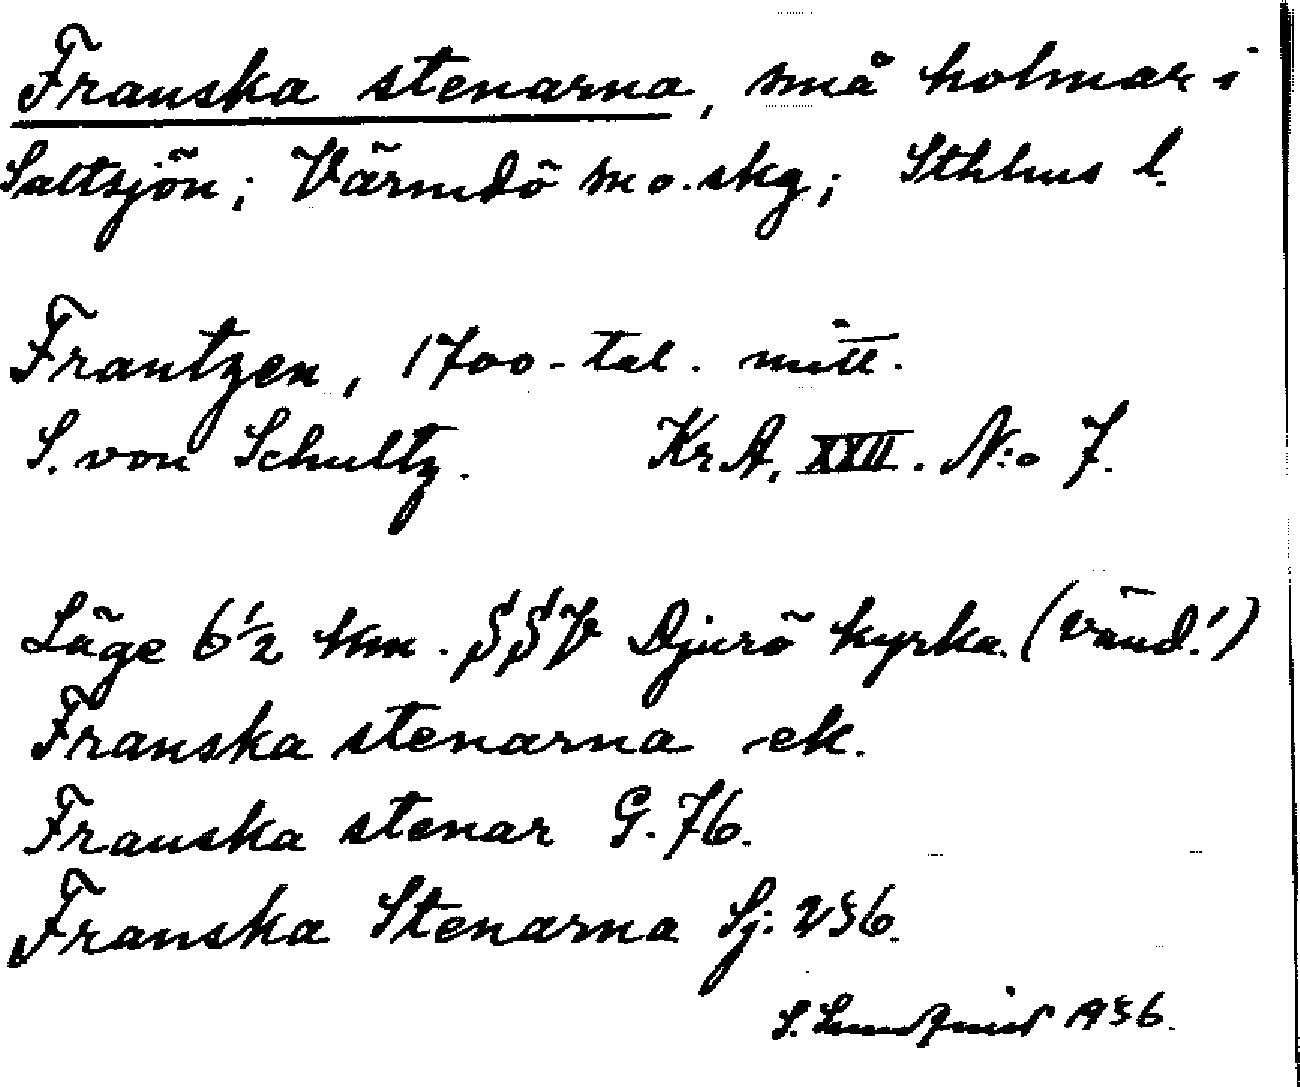 Franska stenarna, små holmar i
Saltsjön; Värmdö m o. skg; Sthlms l.
Frantzen, 1700-tal. mitt.
S. von Schultz. Kr. A. XXII. N:o 7.
Läge 6 1/2 km. SSV Djurö kyrka. (vänd!)
Franska stenarna ek.
Franska stenar G. 76.
Franska Stenarna Sj: 236.
S. Lundqvist 1936.